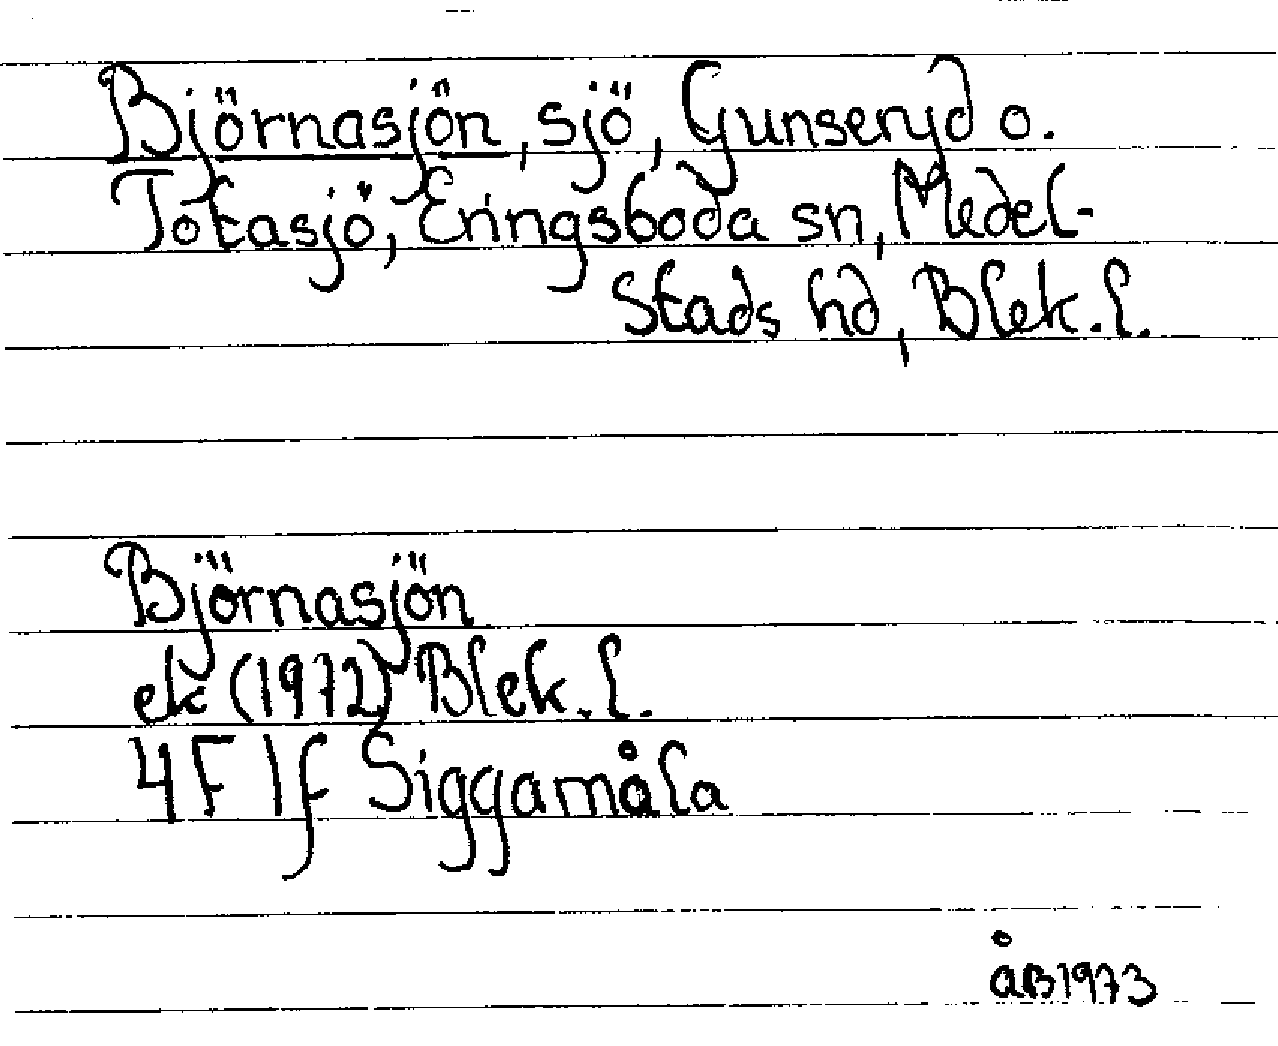 Björnasjön, sjö, Gunseryd o.
Tokasjö, Eringsboda sn, Medel-
stads hd, Blek. l.
Björnasjön
ek (1972) Blek. l.
4F 1f Siggamåla
åB1973